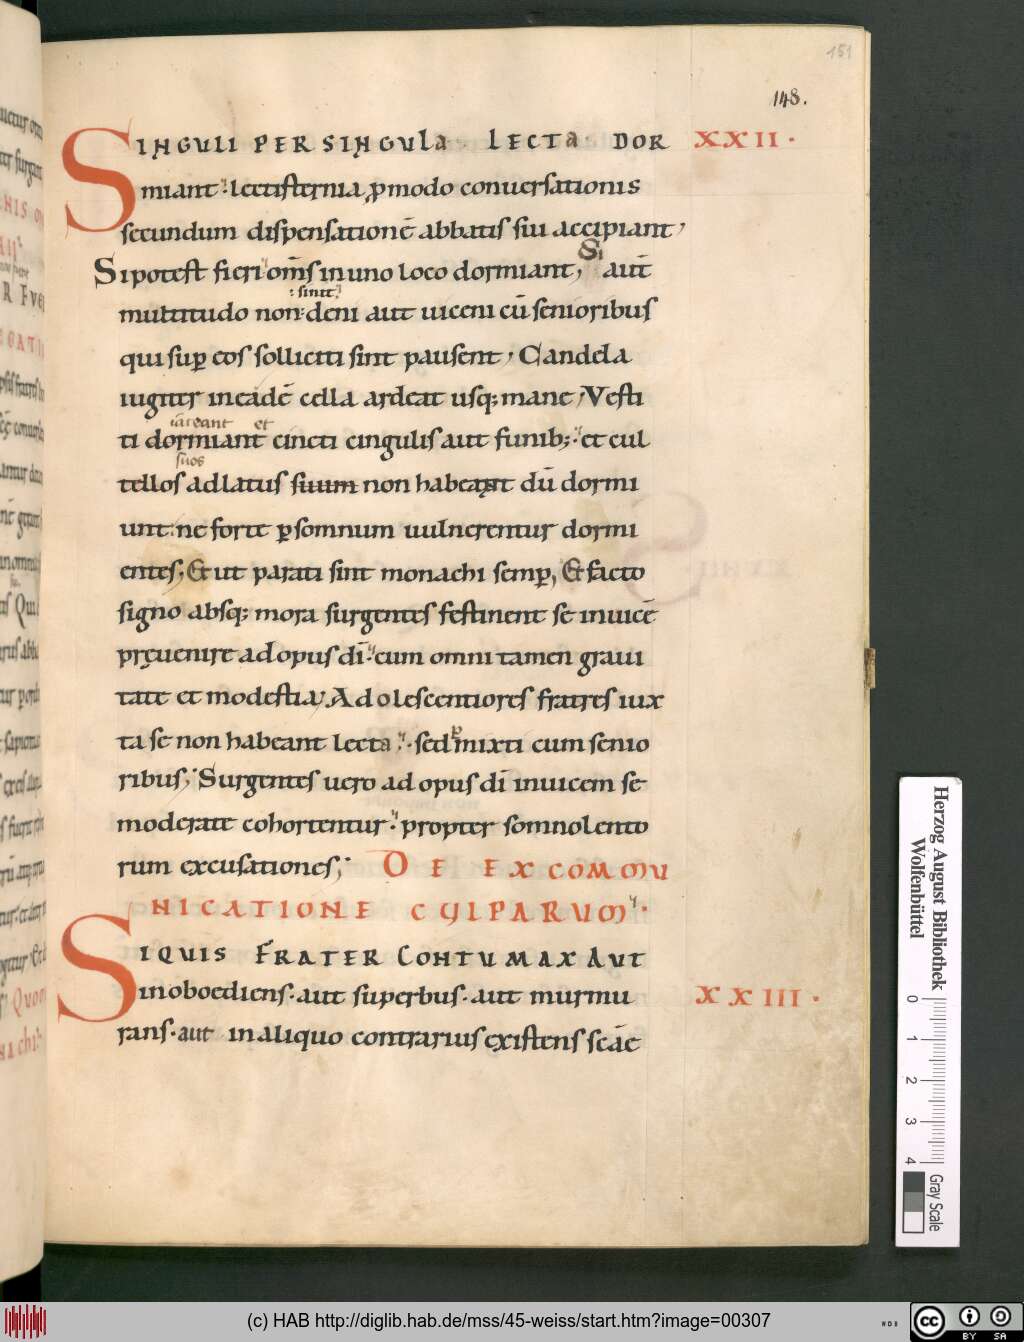 151
148.
SINGULI PER SINGULA · LECTA · DOR XXII ·
miant · lectisternia, ꝓmodo conuersationis
secundum dispensationē abbatis sui accipiant,
Si potest fieri om̄s in uno loco dormiant, Si aut̄
: sinit,
multitudo non: deni aut uiceni cū senioribus
qui suꝑ eos solliciti sint pausent, Candela
iugiter in eadē cella ardeat usq; mane, Vesti
iaceant et
ti dormiant cincti cingulis aut funib; · et cul
suos
tellos ad latus suum non habeant dū dormi
unt: ne forte ꝑ somnum uulnerentur dormi
entes; Et ut parati sint monachi semꝑ, Et facto
signo absq; mora surgentes festinent se inuicē
pręuenire ad opus dī · cum omni tamen graui
tate et modestia, Adolescentiores fratres iux
ta se non habeant lecta · sed ꝑmixti cum senio
ribus, Surgentes uero ad opus dī inuicem se
moderate cohortentur · propter somnolento
rum excusationes; DE EXCOMMU
NICATIONE CULPARUM ·
SIQUIS FRATER CONTUMAX AUT
inoboediens · aut superbus · aut murmu XXIII ·
rans · aut in aliquo contrarius existens scāe
Herzog August Bibliothek
Wolfenbüttel
0 1 2 3 4
Gray Scale
(c) HAB http://diglib.hab.de/mss/45-weiss/start.htm?image=00307
cc BY SA